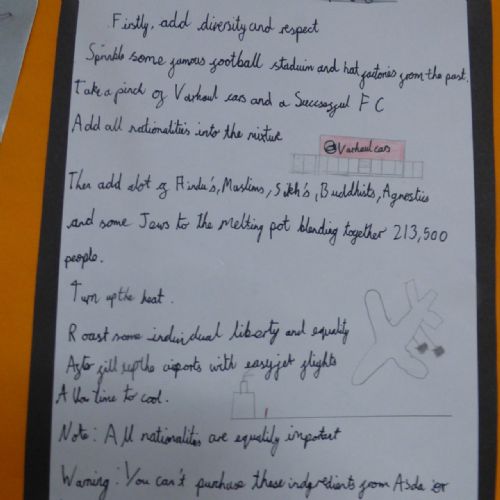 Firstly, add diversity and respect
Sprinkle some famous football staduim and hat factories from the past.
Take a pinch of Varhaul cars and a Successful FC
Add all nationalities into the mixture
Varhaul cars
Then add alot of Hindu's, Muslims, Sikh's, Buddhists, Agnostics
and some Jews to the melting pot blending together 213,500
people.
Turn up the heat.
Roast some individual liberty and equality
After fill up the airports with easyjet flights
Allow time to cool.
Note: All nationalites are equallly important
Warning: You can't purchase these indgredients from Asda or